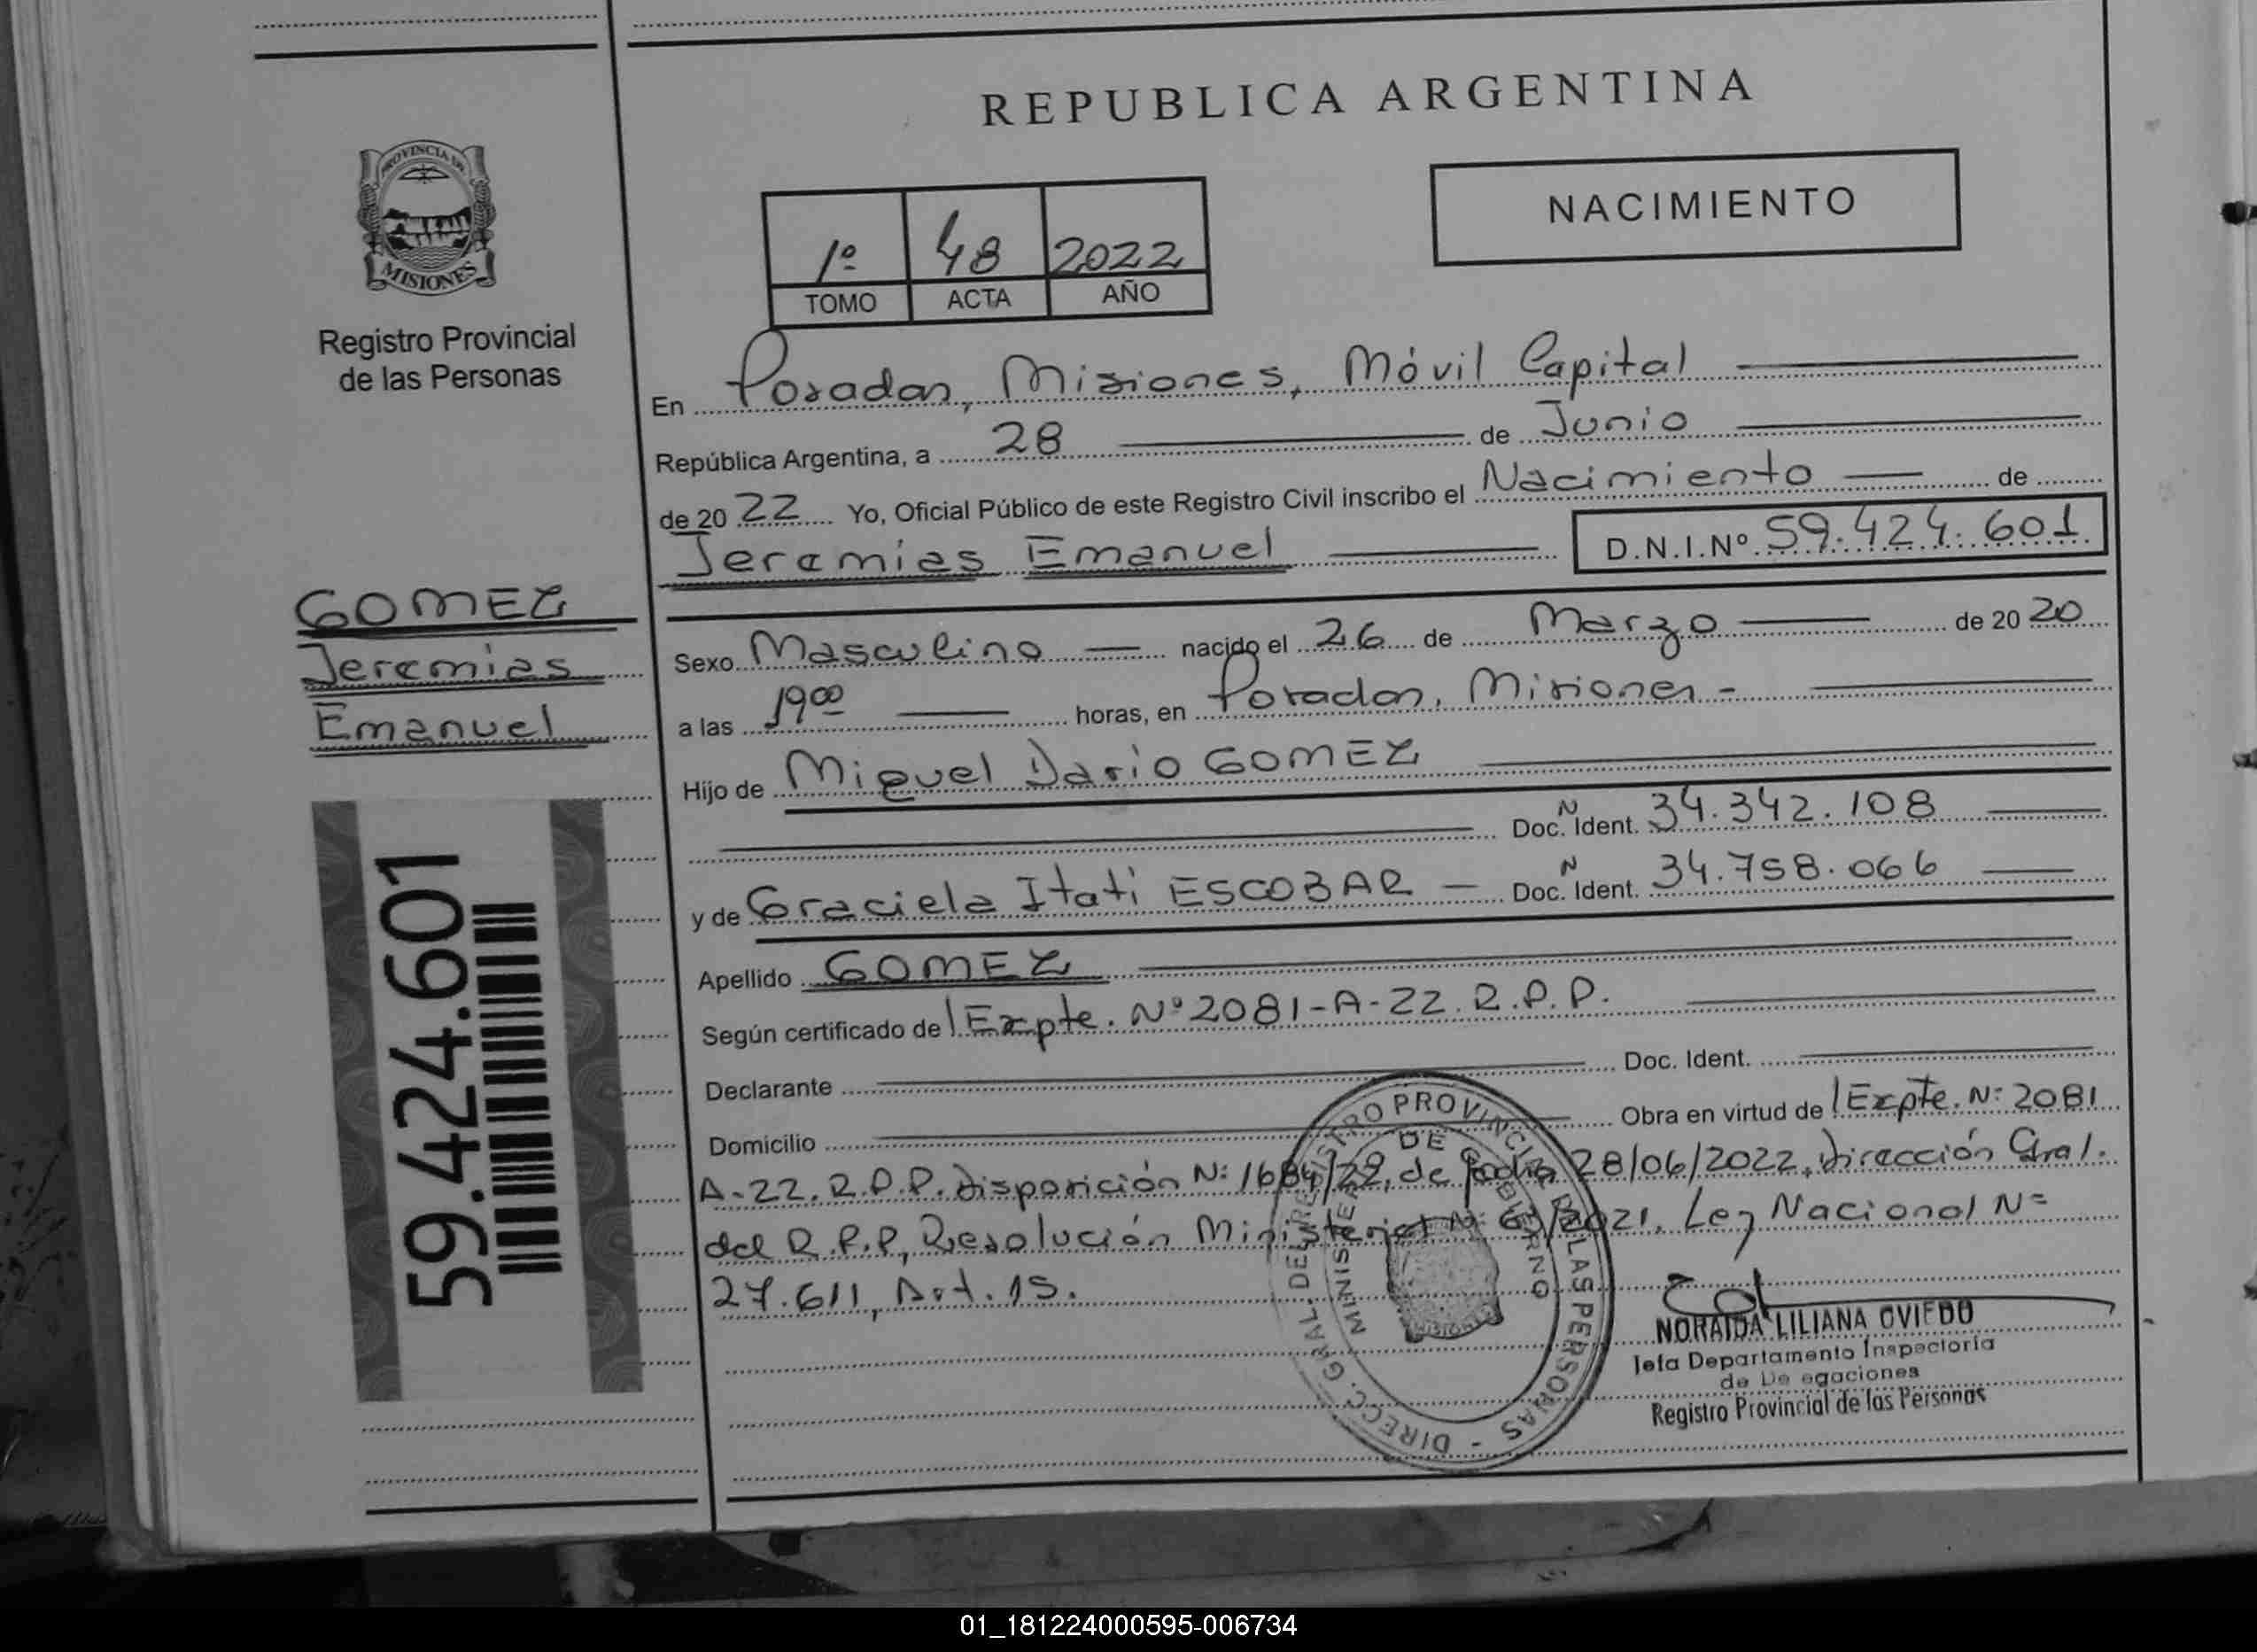 REPUBLICA ARGENTINA
PROVINCIA DE
MISIONES
Registro Provincial
de las Personas
NACIMIENTO
1º 48 2022
TOMO ACTA AÑO
En Posadas, Misiones, Móvil Capital
República Argentina, a 28 de Junio
de 20 22 Yo, Oficial Público de este Registro Civil inscribo el Nacimiento de
Jeremias Emanuel D.N.I.Nº 59.424.601
GOMEZ
Jeremias
Emanuel
Sexo Masculino nacido el 26 de Marzo de 20 20
a las 19ºº horas, en Posadas, Misiones -
Hijo de Miguel Dario GOMEZ
Doc. N Ident. 34.342.108
y de Graciela Itati ESCOBAR — Doc. N Ident. 34.758.066
Apellido GOMEZ
Según certificado de Expte. Nº 2081-A-22. R.P.P.
Declarante Doc. Ident.
Domicilio Obra en virtud de Expte. N: 2081
A-22. R.P.P. Disposición N: 1684/22, de fecha 28/06/2022, Dirección Gral.
del R.P.P, Resolución Ministerial N: /2021, Ley Nacional N=
27.611, Art. 15.
59.424.601
DIRECC. GRAL. DEL REGISTRO PROVINCIAL DE LAS PERSONAS -
MINISTERIO DE GOBIERNO
MISIONES
NORAIDA LILIANA OVIEDO
Jefa Departamento Inspectoria
de De egaciones
Registro Provincial de las Personas
01_181224000595-006734